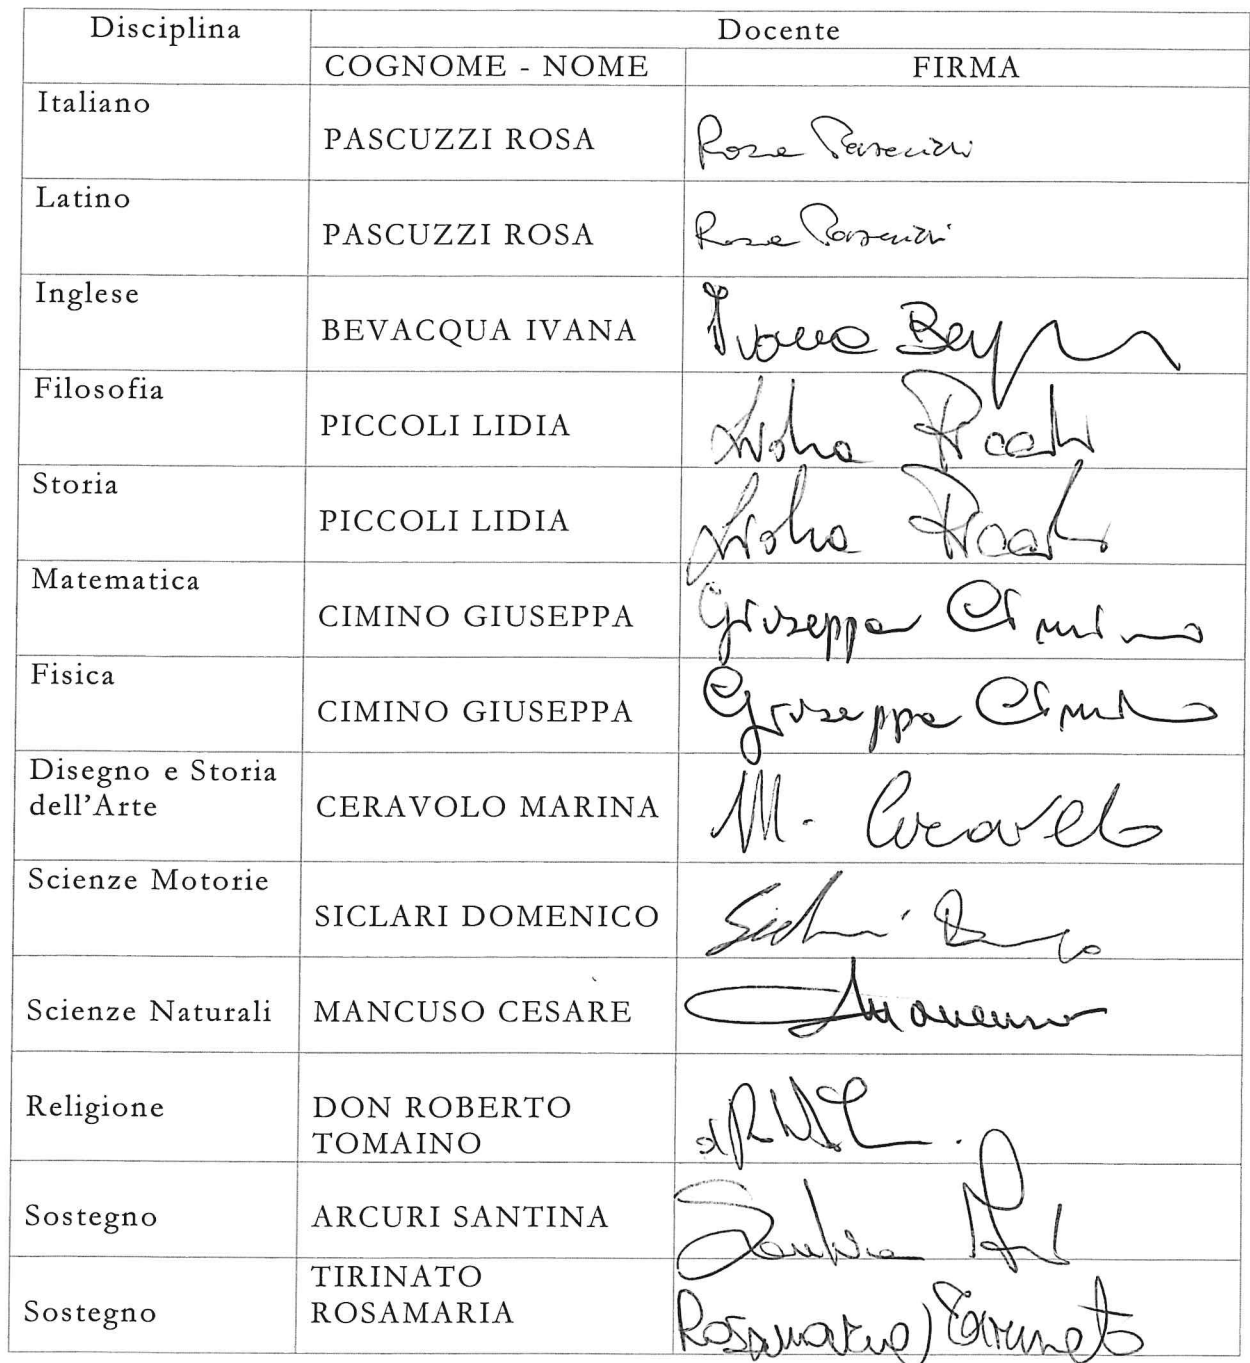 Disciplina
Docente
COGNOME - NOME
FIRMA
Italiano
PASCUZZI ROSA
Rosa Pascuzzi
Latino
PASCUZZI ROSA
Rosa Pascuzzi
Inglese
BEVACQUA IVANA
Ivana
Filosofia
PICCOLI LIDIA
Lidia Piccoli
Storia
PICCOLI LIDIA
Lidia Piccoli
Matematica
CIMINO GIUSEPPA
Giuseppa Cimino
Fisica
CIMINO GIUSEPPA
Giuseppa Cimino
Disegno e Storia
dell'Arte
CERAVOLO MARINA
M. Ceravolo
Scienze Motorie
SICLARI DOMENICO
Scienze Naturali
MANCUSO CESARE
Mancuso
Religione
DON ROBERTO
TOMAINO
Sostegno
ARCURI SANTINA
Santina
Sostegno
TIRINATO
ROSAMARIA
Rosamaria Tirinato